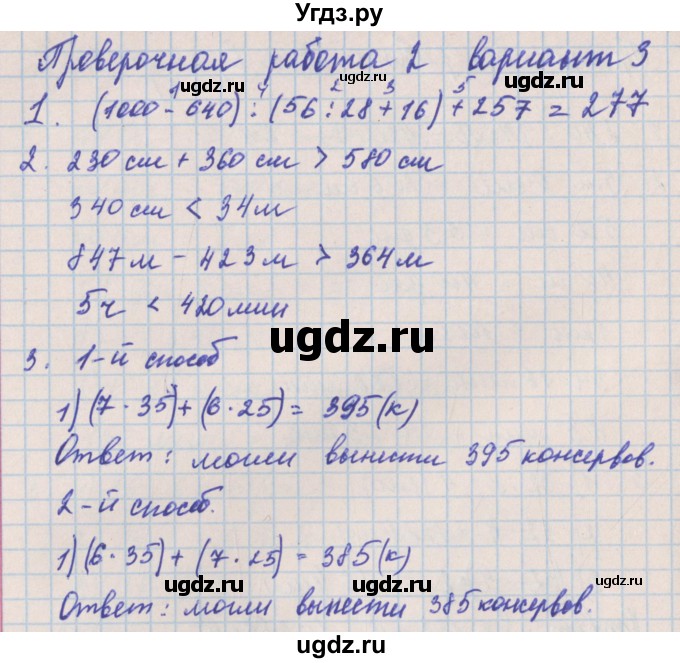 Угдз.ру
Проверочная работа 2 вариант 3
ugdz.ru ugdz.ru
1 4 2 3 5
1. (1000 - 640) : (56 : 28 + 16) + 257 = 277
2. 230 см + 360 см > 580 см
ugdz.ru ugdz.ru
340 см < 34 м
847 м - 423 м > 364 м
ugdz.ru ugdz.ru
5ч < 420 мин
ugdz.ru
3. 1-й способ
1) (7 · 35) + (6 · 25) = 395 (к)
ugdz.ru ugdz.ru
Ответ: могли вынести 395 консервов.
2-й способ.
ugdz.ru ugdz.ru
1) (6 · 35) + (7 · 25) = 385 (к)
ugdz.ru ugdz.ru
Ответ: могли вынести 385 консервов.
ugdz.ru ugdz.ru